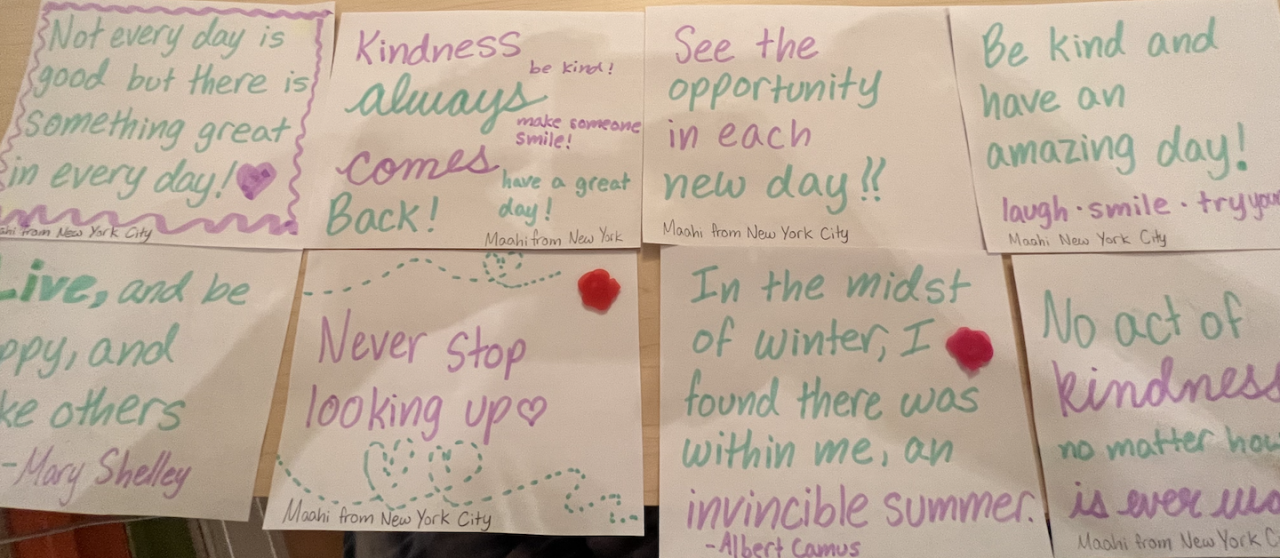 Not every day is
good but there is
something great
in every day!
from New York City
Kindness
be kind!
always
make someone
smile!
comes
have a great
day!
Back!
Maahi from New York
See the
opportunity
in each
new day!!
Maahi from New York City
Be kind and
have an
amazing day!
laugh · smile · try
Maahi New York City
Live, and be
and
others
-Mary Shelley
Never Stop
looking up♡
Maahi from New York City
In the midst
of winter, I
found there was
within me, an
invincible summer.
-Albert Camus
No act of
kindness
no matter
is ever
Maahi from New York